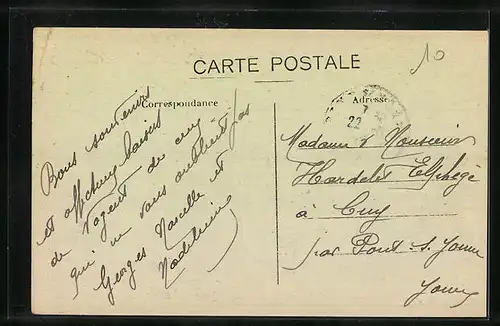 10
CARTE POSTALE
Correspondance
Adresse
7
22
Bons souvenirs
et affectueux baisers
de Nogent de ceux
qui ne vous oublient pas
Georges Marcelle et
Madeleine
Madame & Monsieur
Hardelet Elphège
à Cuy
par Pont-s-Yonne
Yonne